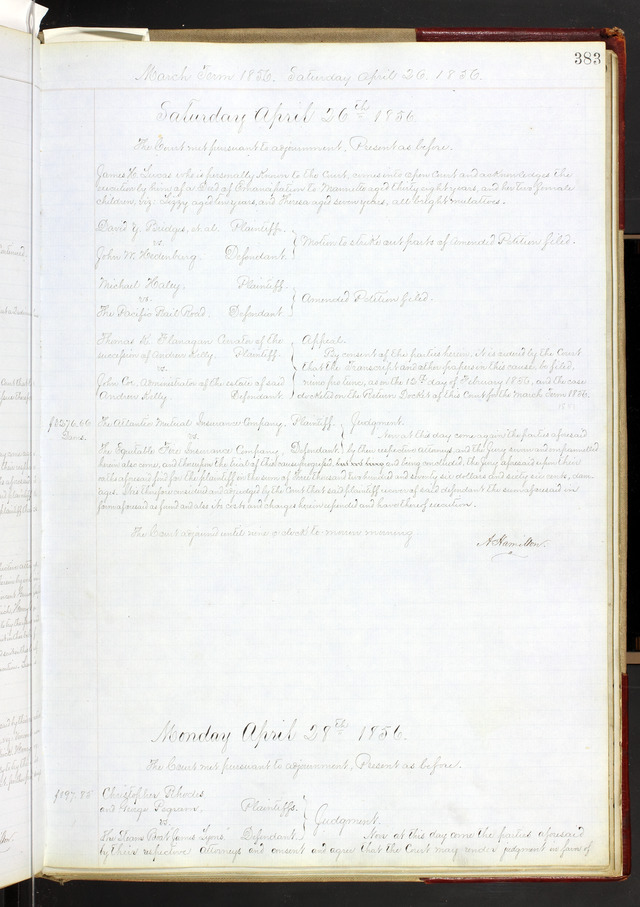 383
March Term 1856. Saturday April 26. 1856.
Saturday April 26th 1856
The Court met pursuant to adjournment, Present as before.
James H. Lucas who is personally known to the Court, comes into open Court and acknowledges the
execution by him of a Deed of Emancipation to aged thirty eight years, and her two female
children, viz: Lizzy aged ten years, and Theresa aged seven years; all bright mulattoes.
David Y. Bridges, et al. Plaintiff.
vs.
John W. Hedenburg. Defendant.
Motion to strike out parts of Amended Petition filed.
Michael Haley. Plaintiff.
vs.
The Pacific Rail Road. Defendant.
Amended Petition filed.
Thomas K. Flanagan Curator of the
succession of Andrew Kelly. Plaintiff.
vs.
John Coe, Administrator of the estate of said
Andrew Kelly. Defendant.
Appeal.
By consent of the parties herein, it is ordered by the Court
that the Transcript and other papers in this cause, be filed,
nunc pro tunc, as on the 12th day of February 1856, and the case
docketed on the Return Docket of this Court for the March Term 1856.
$3276.66
Dams.
The Atlantic Mutual Insurance Company, Plaintiff.
vs.
The Equitable Fire Insurance Company, Defendant.
Judgment.
Now at this day come again the parties aforesaid
by their respective Attorneys, and the Jury sworn and impannelled
herein also come, and thereupon the trial of this cause progressed, but not being and being concluded, the Jury aforesaid upon their
oaths aforesaid find for the plaintiff in the sum of three thousand two hundred and seventy six dollars and sixty six cents, dam-
ages. It is therefore considered and adjudged by the Court that said plaintiff recover of said defendant the sum aforesaid in
form aforesaid as found and also its costs and charges herein expended and have thereof execution.
The Court adjourned until nine o'clock to morrow morning.
A. Hamilton.
Monday April 28th 1856.
The Court met pursuant to adjournment, Present as before.
$197.85
Christopher Rhodes
and George Pegram, Plaintiffs.
vs.
The Steam Boat James Lyons. Defendant.
Judgment.
Now at this day come the parties aforesaid
by their respective attorneys and consent and agree that the Court may render judgment in favor of